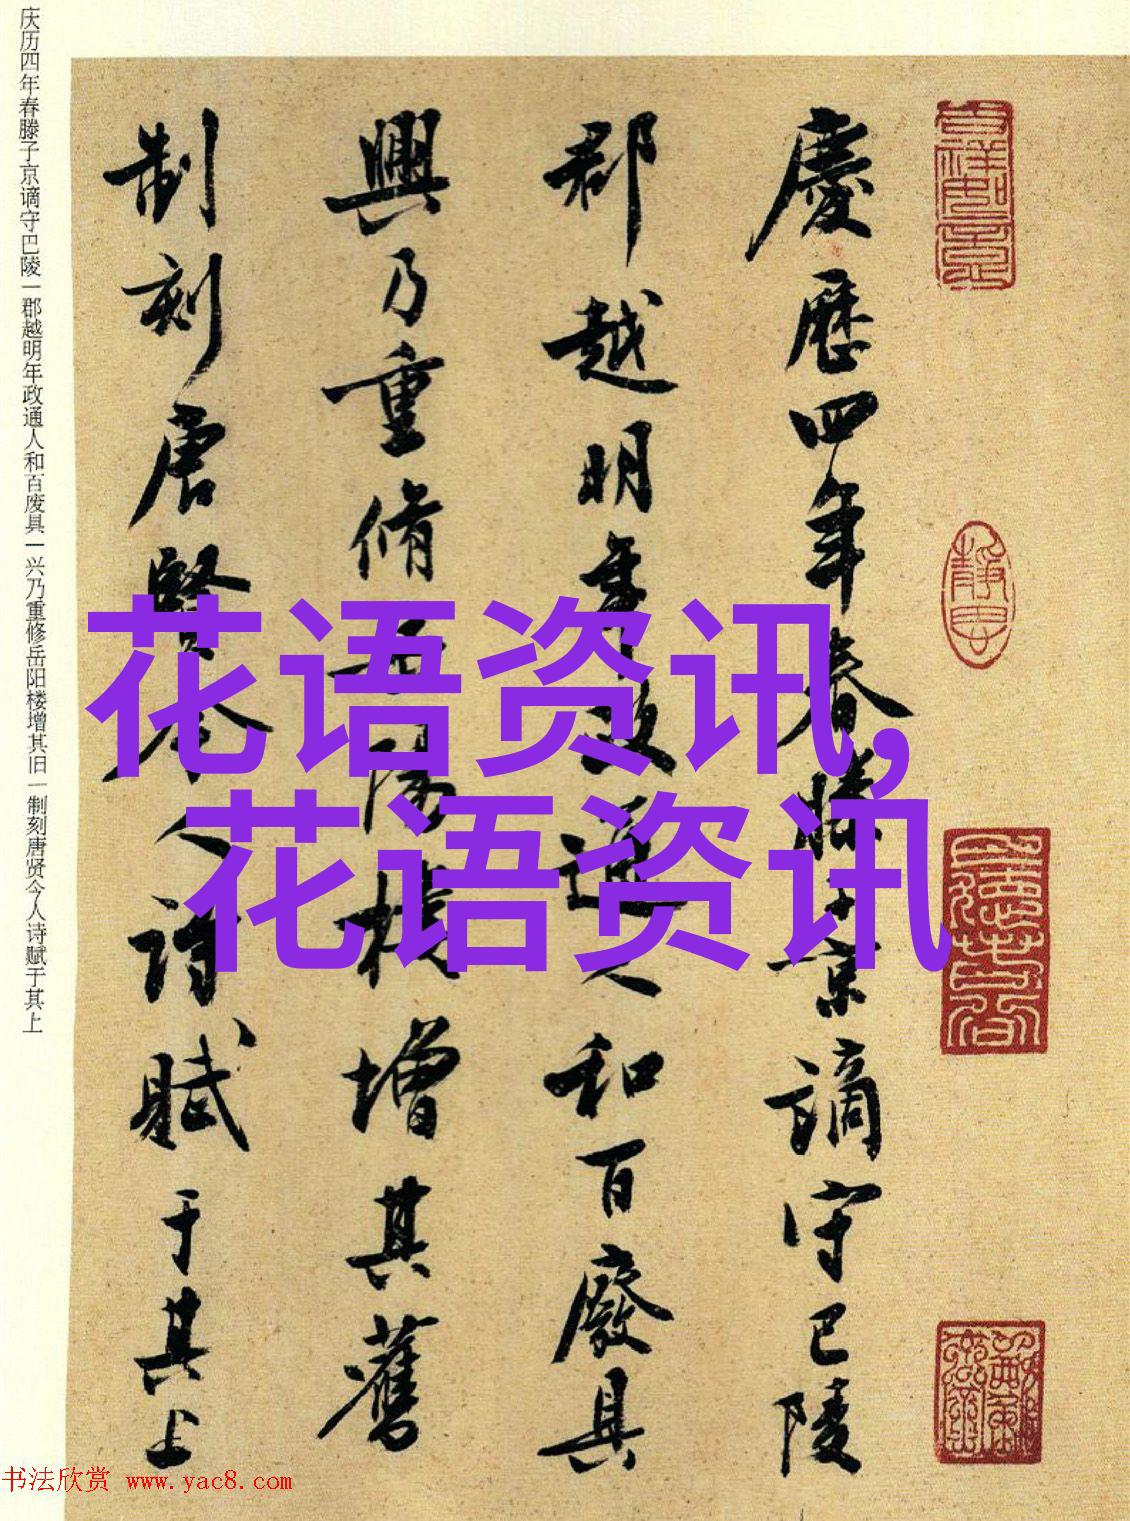 慶歷四年春滕子京謫守巴陵
郡越明年政通人和百廢具
興乃重脩岳陽樓增其舊
制刻唐賢今人詩賦于其上
庆历四年春滕子京谪守巴陵一郡越明年政通人和百废具一兴乃重修岳阳楼增其旧一制刻唐贤今人诗赋于其上
花语资讯,
花语资讯
书法欣赏 www.yac8.com